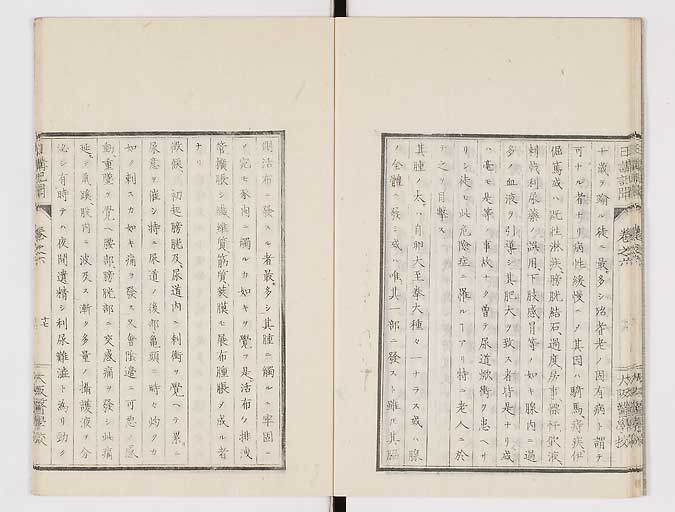 日講記聞 卷之六
大阪醫學校
十歲ヲ踰ル徒ニ最多シ殆耆老ノ固有病ト謂テ
可ナル者ナリ病性緩慢ニノ其因ハ騎馬、痔疾伊
倔篤或ハ既往淋疾、膀胱結石、過度房事
刺戟利尿藥ノ誤用、下肢感冒等ノ如キ腺內ニ過
多ノ血液ヲ引導シ其肥大ヲ致ス者皆是ナリ或
ハ毫モ是等ノ事故ナク曽テ尿道焮衝ヲ患ヘサ
リシ徒モ此危險症ニ罹ルヿアリ特ニ老人ニ於
テ之ヲ目擊ス
其腫大ハ自卵大至拳大種々一ナラス或ハ腺
ノ全體ニ發シ或ハ唯其一部ニ發スト雖モ其
剛活布ニ發スル者最多シ其腫ニ觸ルニ牢固ニ
ヲ宛モ豚肉ニ觸ルカ如キヲ覺フ是活布ク排洩
管擴脹シ纖維質、筋質、莢膜モ展布腫脹ヲ成ル者
ナリ
徵候 初起膀胱及尿道內ニ刺衝ヲ覺ヘテ累ニ
尿意ヲ催シ特ニ尿道ノ後部龜頭ニ時々灼クカ
如ク刺スカ如キ痛ヲ發ス又會陰邊ニ可惡ノ感
動、重墜ヲ覺ヘ腰部膀胱部ニ交感痛ヲ發シ此痛
延テ氣蹊股內ニ波及ス漸ク多量ノ攝護液ヲ分
泌シ有時テハ夜間遺精シ利尿難澁ト為リ動ク
日講記聞 卷之六 十七
大阪醫學校